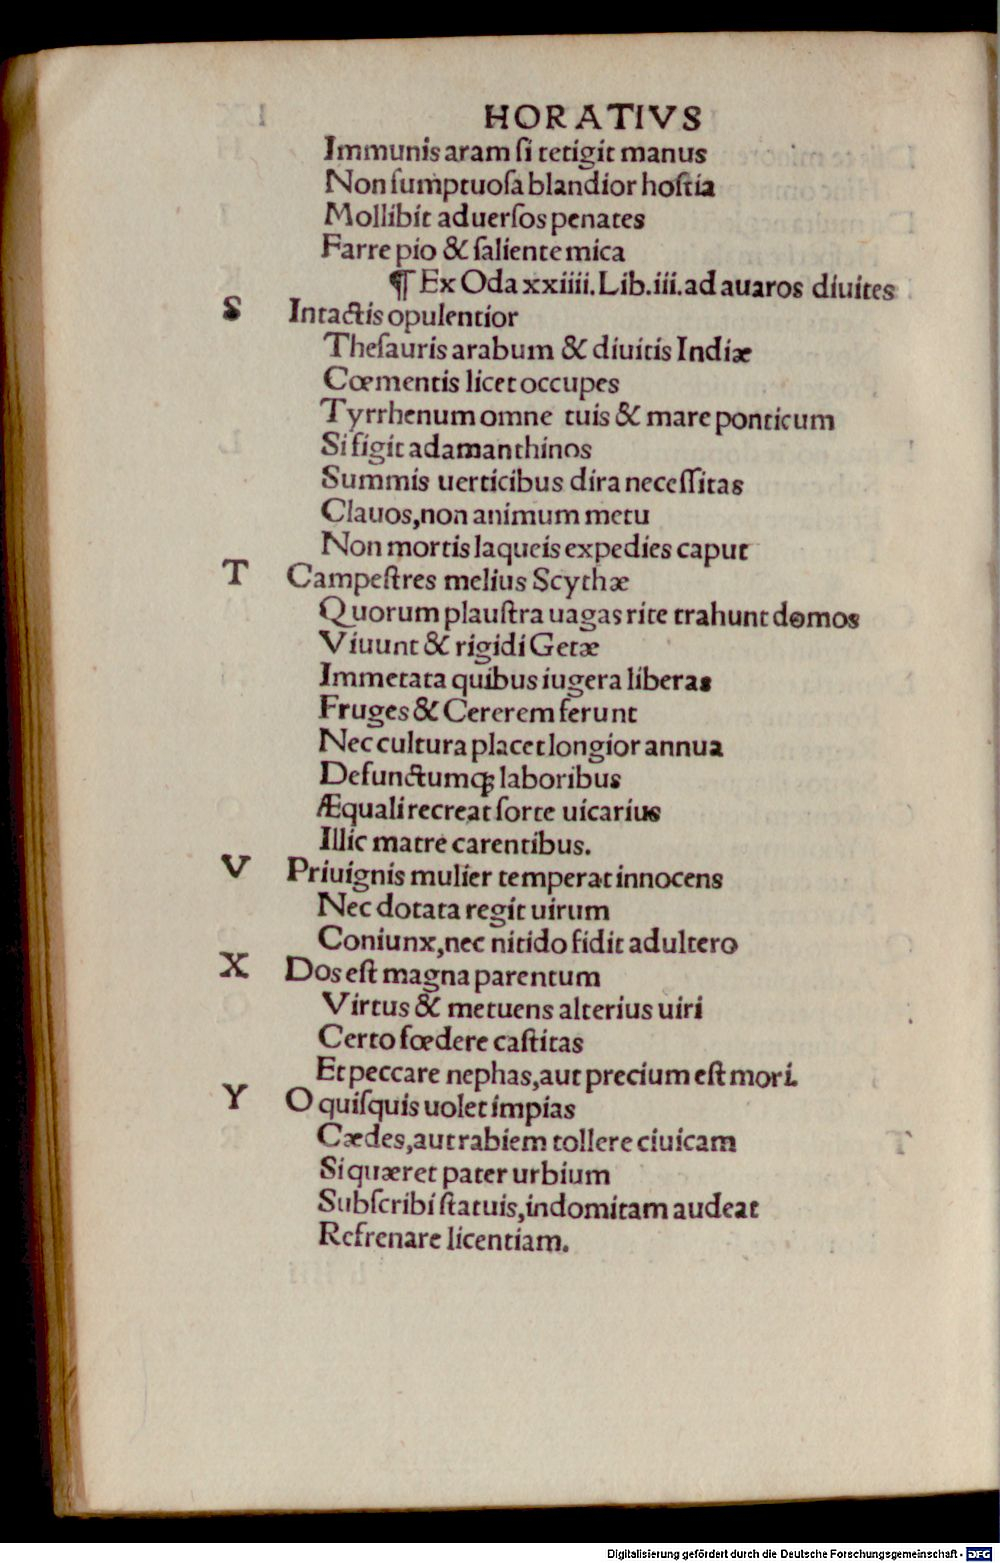 HORATIVS
Immunis aram ſi tetigit manus
Non ſumptuoſa blandior hoſtia
Mollibit aduerſos penates
Farre pio & ſaliente mica
¶ Ex Oda xxiiii. Lib.iii. ad auaros diuites
S Intactis opulentior
Theſauris arabum & diuitis Indiæ
Cœmentis licet occupes
Tyrrhenum omne tuis & mare ponticum
Si figit adamanthinos
Summis uerticibus dira neceſſitas
Clauos, non animum metu
Non mortis laqueis expedies caput
T Campeſtres melius Scythæ
Quorum plauſtra uagas rite trahunt domos
Viuunt & rigidi Getæ
Immetata quibus iugera liberas
Fruges & Cererem ferunt
Nec cultura placet longior annua
Defunctumqꝫ laboribus
Æquali recreat ſorte uicarius
Illic matre carentibus.
V Priuignis mulier temperat innocens
Nec dotata regit uirum
Coniunx, nec nitido fidit adultero
X Dos eſt magna parentum
Virtus & metuens alterius uiri
Certo fœdere caſtitas
Et peccare nephas, aut precium eſt mori.
Y O quiſquis uolet impias
Cædes, aut rabiem tollere ciuicam
Si quæret pater urbium
Subſcribi ſtatuis, indomitam audeat
Refrenare licentiam.
Digitalisierung gefördert durch die Deutsche Forschungsgemeinschaft - DFG